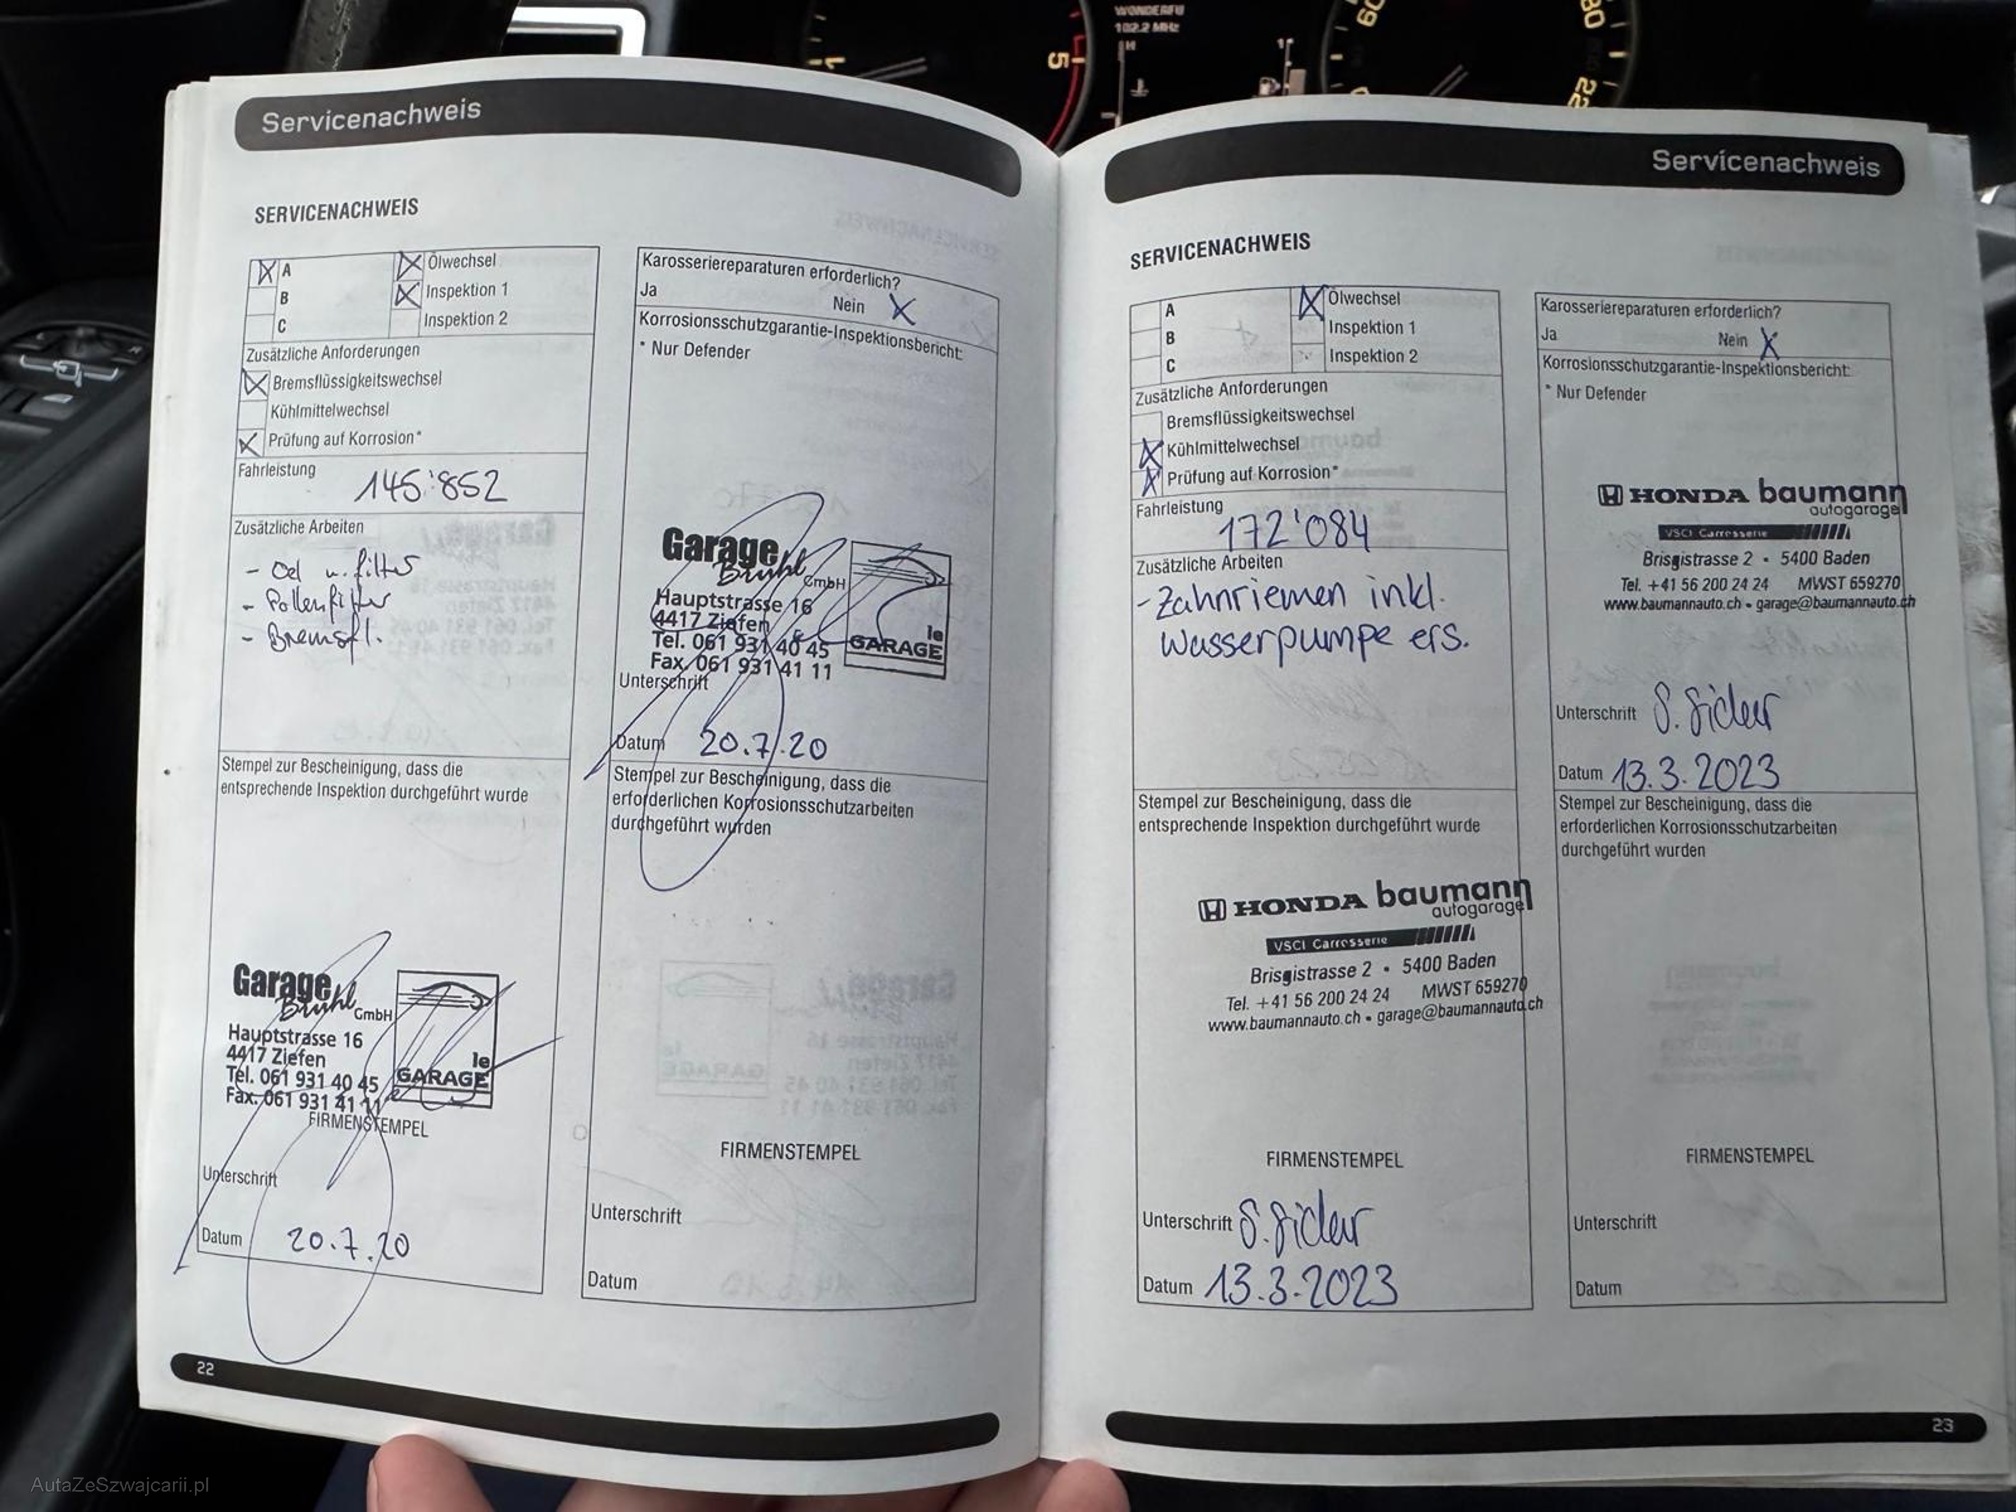 WONDERFU
102.2 MHz
H
1
5
60
80
22
Servicenachweis
SERVICENACHWEIS
A
B
C
Ölwechsel
Inspektion 1
Inspektion 2
Zusätzliche Anforderungen
Bremsflüssigkeitswechsel
Kühlmittelwechsel
Prüfung auf Korrosion*
Fahrleistung
145'852
Zusätzliche Arbeiten
- Oel u. filter
- Pollenfilter
- Bremsfl.
Stempel zur Bescheinigung, dass die
entsprechende Inspektion durchgeführt wurde
Garage
Brühl GmbH
Hauptstrasse 16
4417 Ziefen
Tel. 061 931 40 45
Fax. 061 931 41 11
le
GARAGE
FIRMENSTEMPEL
Unterschrift
Datum 20.7.20
Karosseriereparaturen erforderlich?
Ja Nein X
Korrosionsschutzgarantie-Inspektionsbericht:
* Nur Defender
Garage
Brühl GmbH
Hauptstrasse 16
4417 Ziefen
Tel. 061 931 40 45
Fax. 061 931 41 11
le
GARAGE
Unterschrift
Datum 20.7.20
Stempel zur Bescheinigung, dass die
erforderlichen Korrosionsschutzarbeiten
durchgeführt wurden
FIRMENSTEMPEL
Unterschrift
Datum
22
Servicenachweis
SERVICENACHWEIS
A
B
C
Ölwechsel
Inspektion 1
Inspektion 2
Zusätzliche Anforderungen
Bremsflüssigkeitswechsel
Kühlmittelwechsel
Prüfung auf Korrosion*
Fahrleistung
172'084
Zusätzliche Arbeiten
- Zahnriemen inkl.
Wasserpumpe ers.
Stempel zur Bescheinigung, dass die
entsprechende Inspektion durchgeführt wurde
HONDA baumann
autogarage
VSCI Carrosserie
Brisgistrasse 2 • 5400 Baden
Tel. +41 56 200 24 24 MWST 659270
www.baumannauto.ch • garage@baumannauto.ch
FIRMENSTEMPEL
Unterschrift
Datum 13.3.2023
Karosseriereparaturen erforderlich?
Ja Nein X
Korrosionsschutzgarantie-Inspektionsbericht:
* Nur Defender
HONDA baumann
autogarage
VSCI Carrosserie
Brisgistrasse 2 • 5400 Baden
Tel. +41 56 200 24 24 MWST 659270
www.baumannauto.ch • garage@baumannauto.ch
Unterschrift
Datum 13.3.2023
Stempel zur Bescheinigung, dass die
erforderlichen Korrosionsschutzarbeiten
durchgeführt wurden
FIRMENSTEMPEL
Unterschrift
Datum
23
AutaZeSzwajcarii.pl